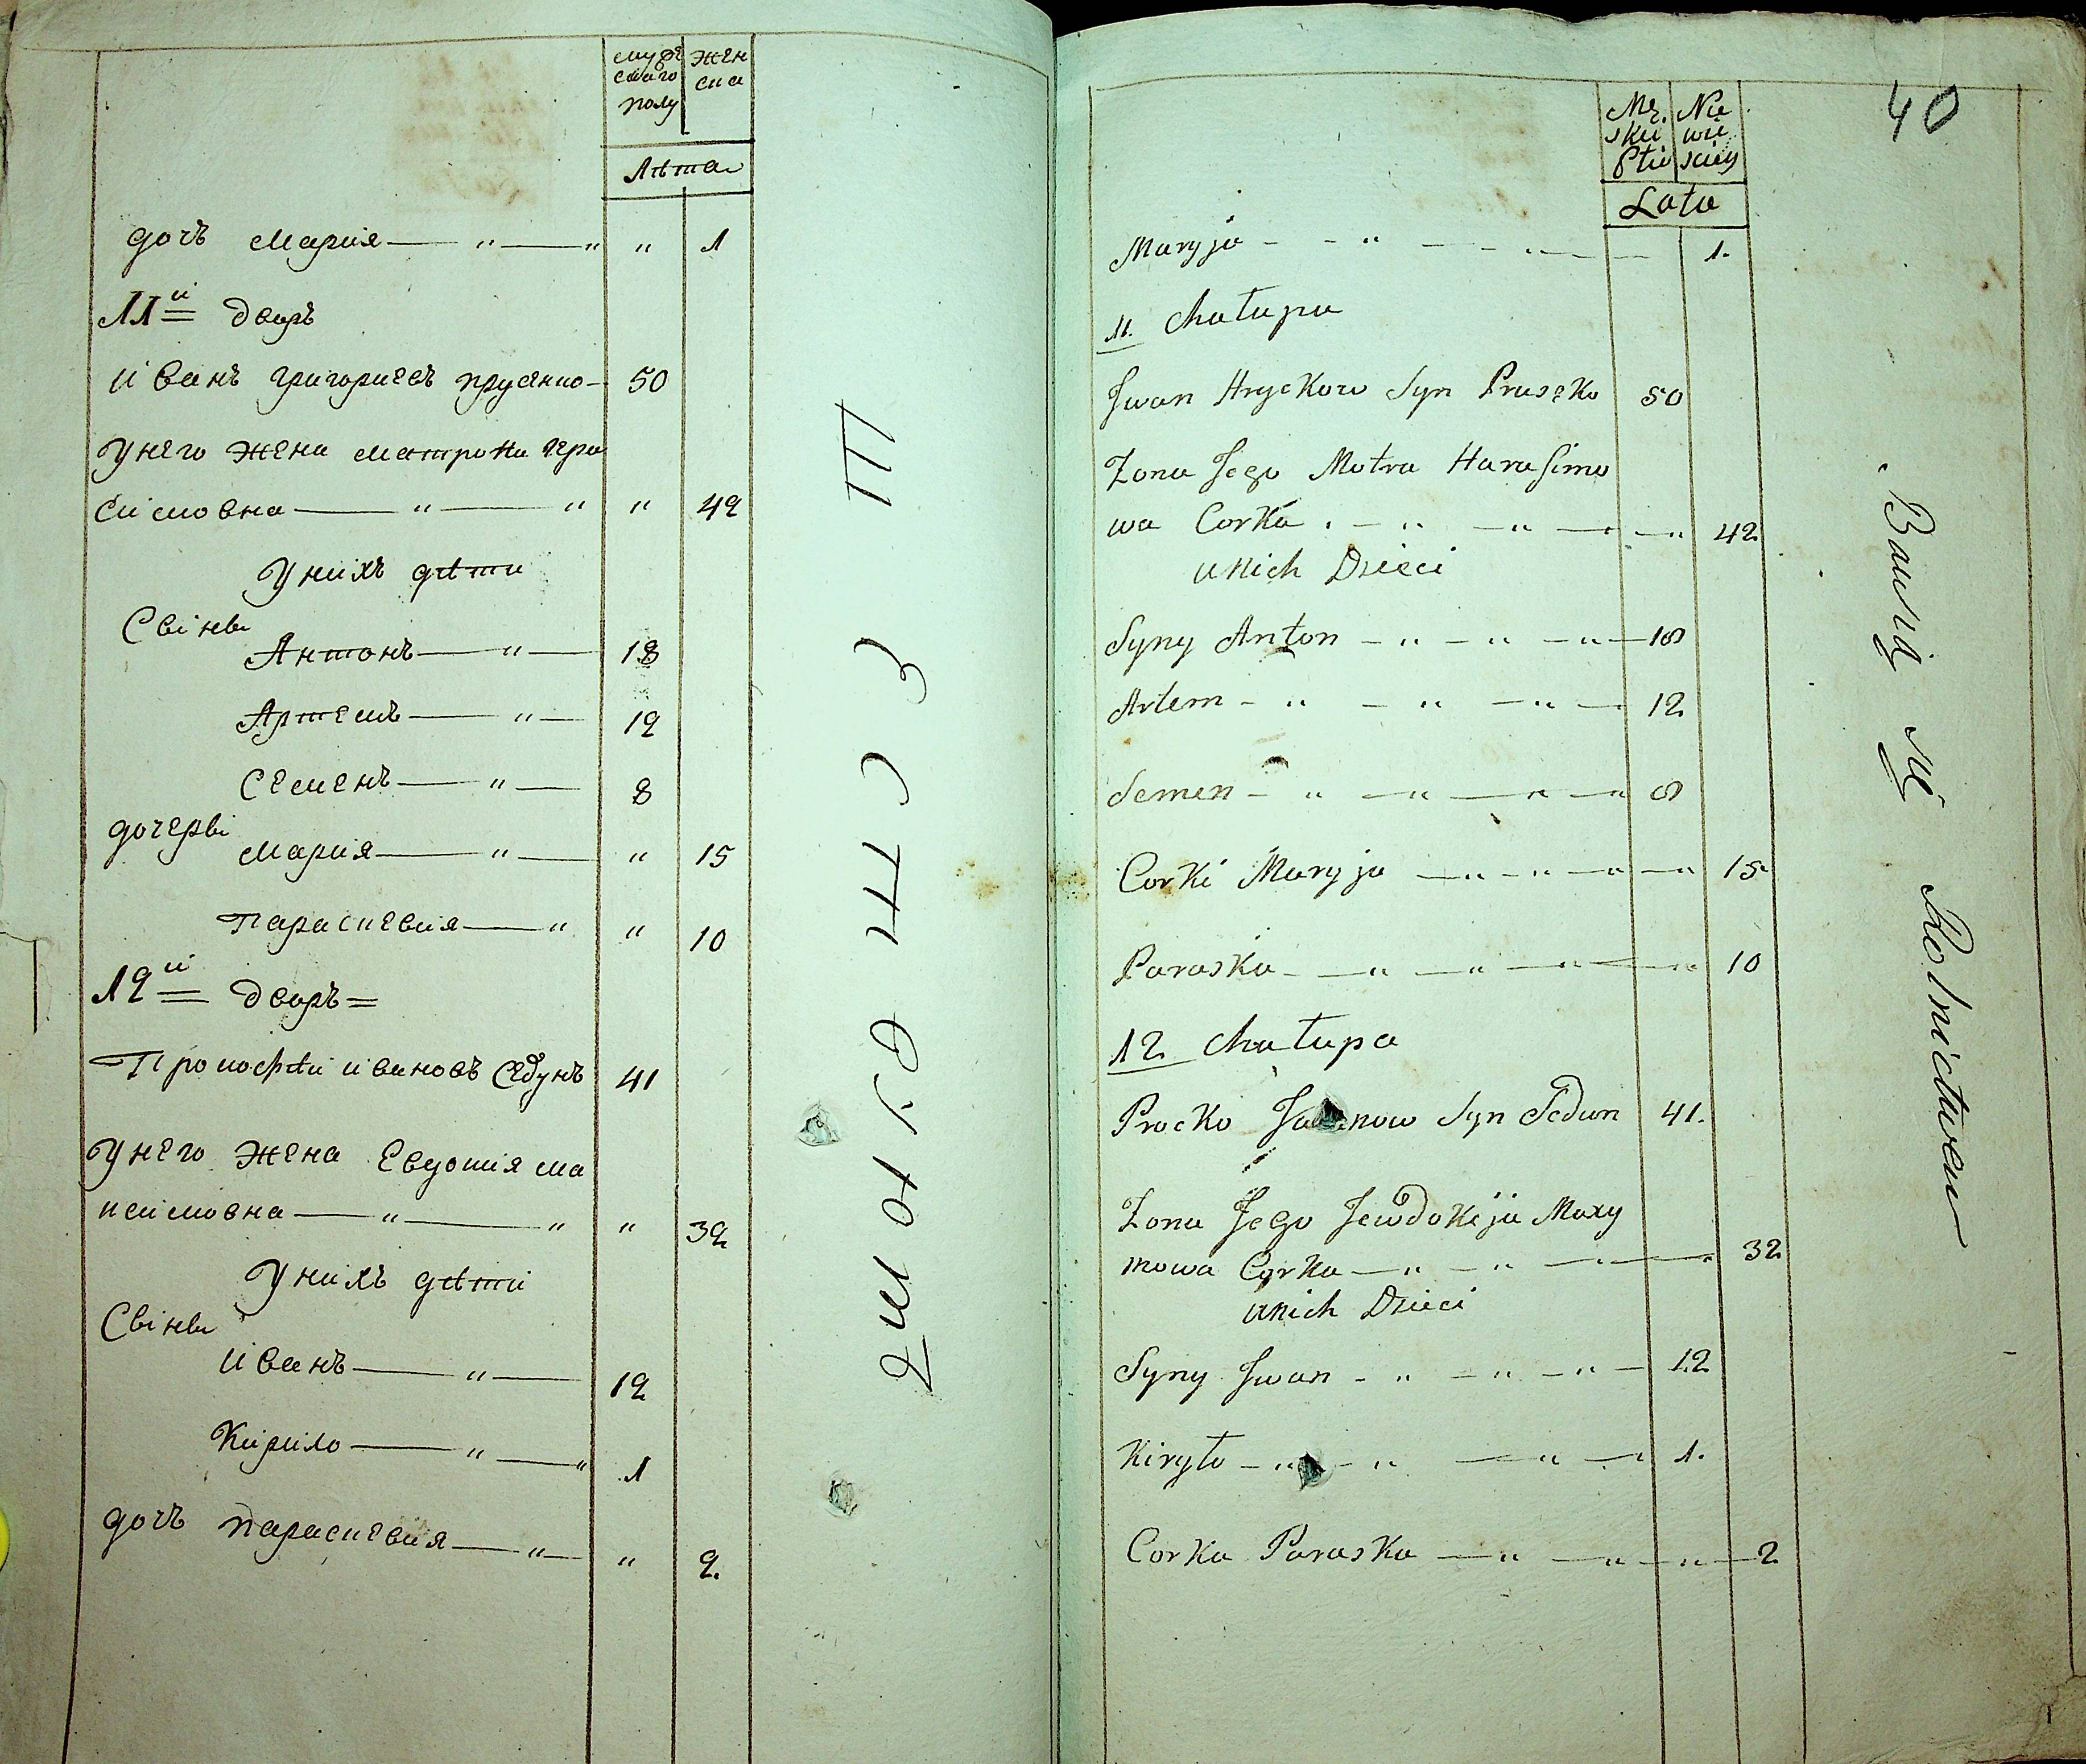 мужескаго полу
женска
Лѣта
дочь Мария — " — " " 1
11й дворъ
Иванъ григориевъ прусенко — 50
У него жена Матрона Гера
симовна — " — " " 42
У нихъ дѣти
Сыны
Антонъ — " — 18
Артемъ — " — 12
Семенъ — " — 8
дочеры
Мария — " — " 15
Параскевия — " " 10
12й дворъ =
Прокофѣй ивановъ Седунъ 41
У него жена Евдокия Ма
ксимовна — " — " " 32
У нихъ дѣти
Сыны
Иванъ — " — 12
Кирило — " — " 1
дочь параскевия — " — " 2.
40
Mę. skii Płci
Nie wie sciey
Lata
Maryja - - " - - " - 1.
11. Chałupa
Jwan Hryckow Syn Pruszko 50
Zona Jego Motra Harasimo
wa Corka - " - " - " 42
u nich Dzieci
Syny Anton - " - " - " - 18
Artem - " - " - " - 12
Semen - " - " - " - " 8
Corki Maryja - " - " - " - " 15
Paraska - " - " - " - " 10
12 Chałupa
Procko Jwanow Syn Sedun 41.
Zona Jego Jewdokija Maxy
mowa Corka - " - " - 32
u nich Dzieci
Syny Jwan - " - " - " - 12
Kiryło - " - " - " - 1.
Corka Paraska - " - " - " - 2
Bawią się Rolnictwem